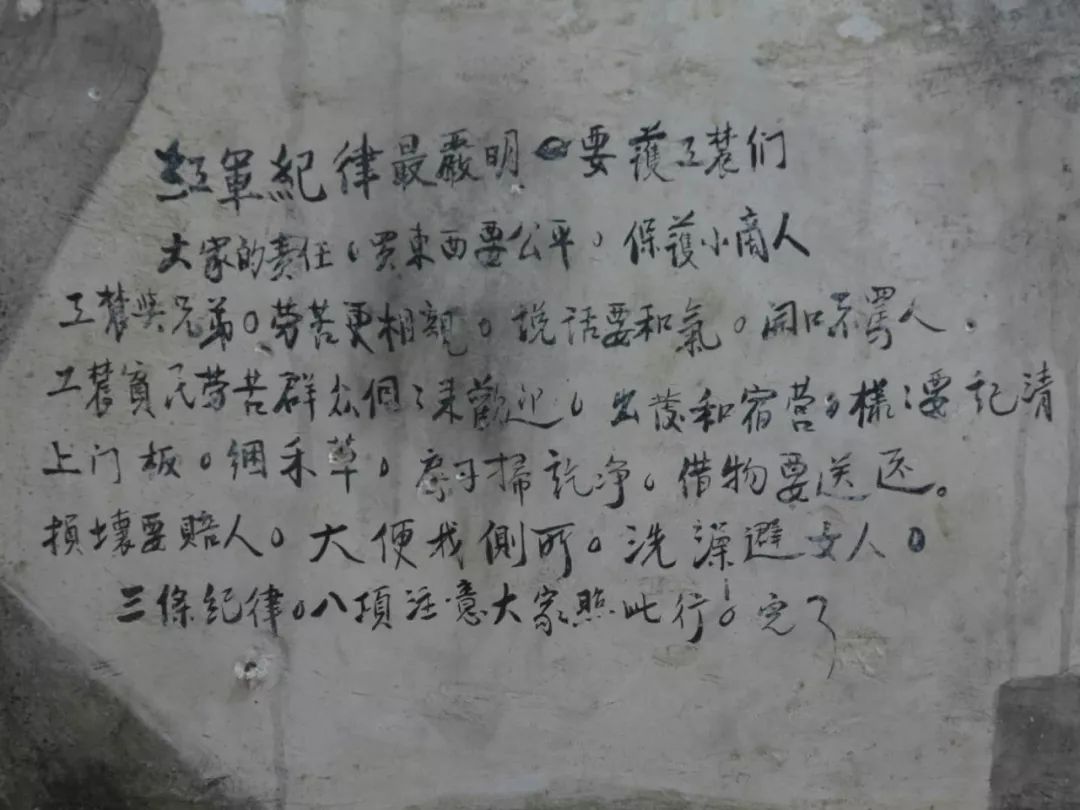 红軍紀律最嚴明。要護工農们
大家的責任。買東西要公平。保護小商人
工農兴兄弟。劳苦更相親。説话要和氣。開口不罵人。
工農貧民劳苦群众個々来歡迎。出發和宿营。樣々要記清
上门板。綑禾草。房子掃乾净。借物要送还。
損壞要賠人。大便找側所。洗澡避女人。
三條紀律。八項注意大家照此行。完了